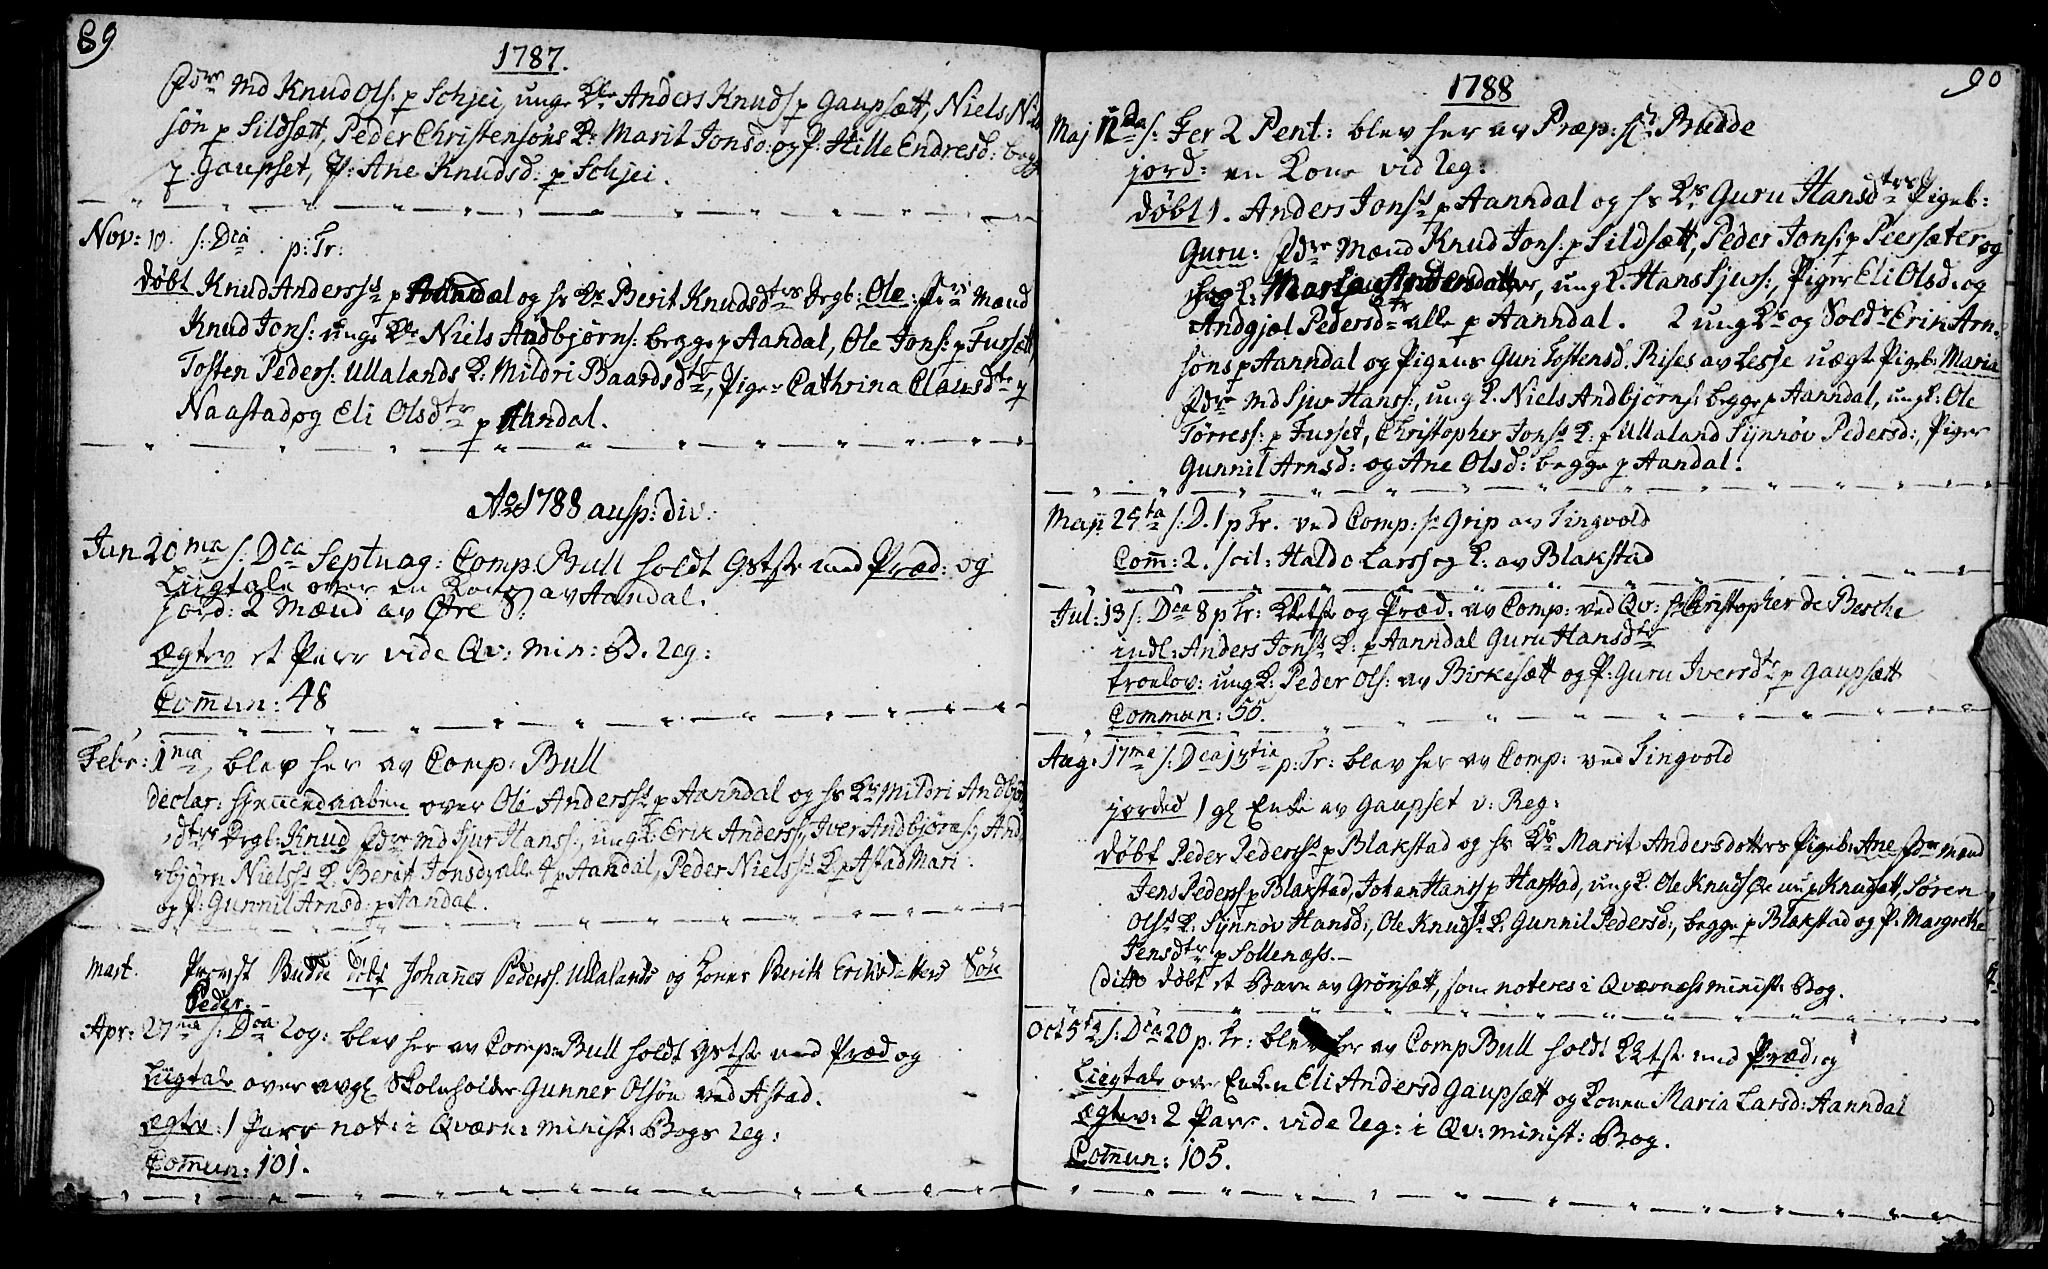 89
1787.
Fdre Md Knud Ols: p Schjei, unge Kle Anders Knuds p Gaupsætt, Niels Niel
søn p Sildsætt, Peder Christensøns K: Marit Jonsd: og P: Hille Endresd: begge
p Gaupset, P: Ane Knudsd: p Schjei.
Nov: 10. s: Dca p: Tr:
døbt Knud Anderss p Aandal og hs Ks Berit Knudsdtrs Drgb: Ole: Fdre Mænd
Knud Jons: unge Kle Niels Andbjørns: begge p Aandal, Ole Jons: p Fursætt
Tosten Peders: Ullalands K: Mildri Baardsdtr, Piger Cathrina Clausdtr p
Naastad og Eli Olsdtr p Aandal.
Ao 1788 ausp: div:
Jan 20ma s: Dca Septuag: Comp: Bull holdt Gstste med Præd: og
Liigtale over en Kone av Aandal.
jord: 2 Mænd av Øre S:
ægtev et Parr vide Qv: Min: B. Reg:
Com̄un: 48
Febr: 1ma, blev her av Comp: Bull
declar: hjemmedaaben over Ole Anderss p Aanndal og hs Ks Mildri Andbjør
dtrs Drgb: Knud Fdre Md Sjur Hanss:, ung K: Erik Anderss:, Iver Andbjørns:, And
bjørn Nielss K. Berit Jonsd, alle p Aandal, Peder Nielss K. p Astad Mari
og P: Gunnil Arnsd: p Aandal.
Mart. Provst Budde døbt Johan̄es Peders. Ullalands og Kones Berith Eriksdatters Søn
Peder.
Apr: 27ma s: Dca Rog: blev her av Comp: Bull holdt Gstste med Præd og
Liigtale over avgl Skoleholder Gunner Olsøn ved Astad.
ægtv: 1 Parr not: i Qværn: minist: Bogs Reg:
Com̄un: 101.
90
1788
Maj 12da s: Fer 2 Pent: blev her av Præp: Hr Budde
jord: en Kone vid Reg:
døbt 1. Anders Jonss p Aanndal og hs Ks Guru Hansdtrs Pigeb:
Guru: Fdre Mænd Knud Jons: p Sildsætt, Peder Jons: p Peersæter og
K: Maria Andersdatter, ung K. Hans Sjurs:, Piger Eli Olsd. og
Andgjæl Pedersdtr alle p Aanndal. 2 ung Ks og Soldr Erik Arn-
søns p Aanndal og Pigens Guri Tostensd. Rises av Lesje uægte Pigeb: Maria
Fdre Md Sjur Hans:, ung K. Niels Andbjørns: begge p Aanndal, ung K: Ole
Tørress: p Furset, Christopher Jonss K: p Ullaland Synnøv Pedersd:, Piger
Gunnil Arnsd: og Ane Olsd: begge p Aandal.
Maji 25ta s: D. 1 p Tr. ved Comp: Hr Grip av Tingvold
Com̄: 2. scil: Haldo Larss og K: av Blakstad
Jul: 13 s: Dca 8 p Tr: Gstste og Præd. av Comp: ved Qv: Hr Christopher de Besche
indl: Anders Jonss K: p Aanndal Guru Hansdtr
troelov: ung K: Peder Ols: av Birkesætt og P: Guru Iversdtr p Gaupsætt
Commun: 55.
Aug: 17ma s: Dca 13tia p: Tr: blev her av Comp: ved Tingvold
jorded 1 gl Enke av Gaupset v: Reg:
døbt Peder Pederss p Blakstad og hs Ks Marit Andersdotters Pigeb: Ane Fdre Mænd
Jens Peders p Blakstad, Johan Hanss p Harstad, ung K. Ole Knuds p Knudsætt, Søren
Olss K. Synnøv Hansd:, Ole Knudss K. Gunnil Pedersd:, begge p Blakstad og P: Margrethe
Jensdtr p Sollenæss.
Ditto døbt et Barn av Grønsætt, som noteres i Qværnæss minist: Bog.
Oct 5ta s: Dca 20 p. Tr: blev her av Comp Bull holdt Gstste med Præd: og
Liigtale over Enken Eli Andersd Gaupsætt og Konen Maria Larsd: Aanndal
ægtev: 2 Parr. vide Reg: i Qv: minist: Bog.
Com̄un: 105.